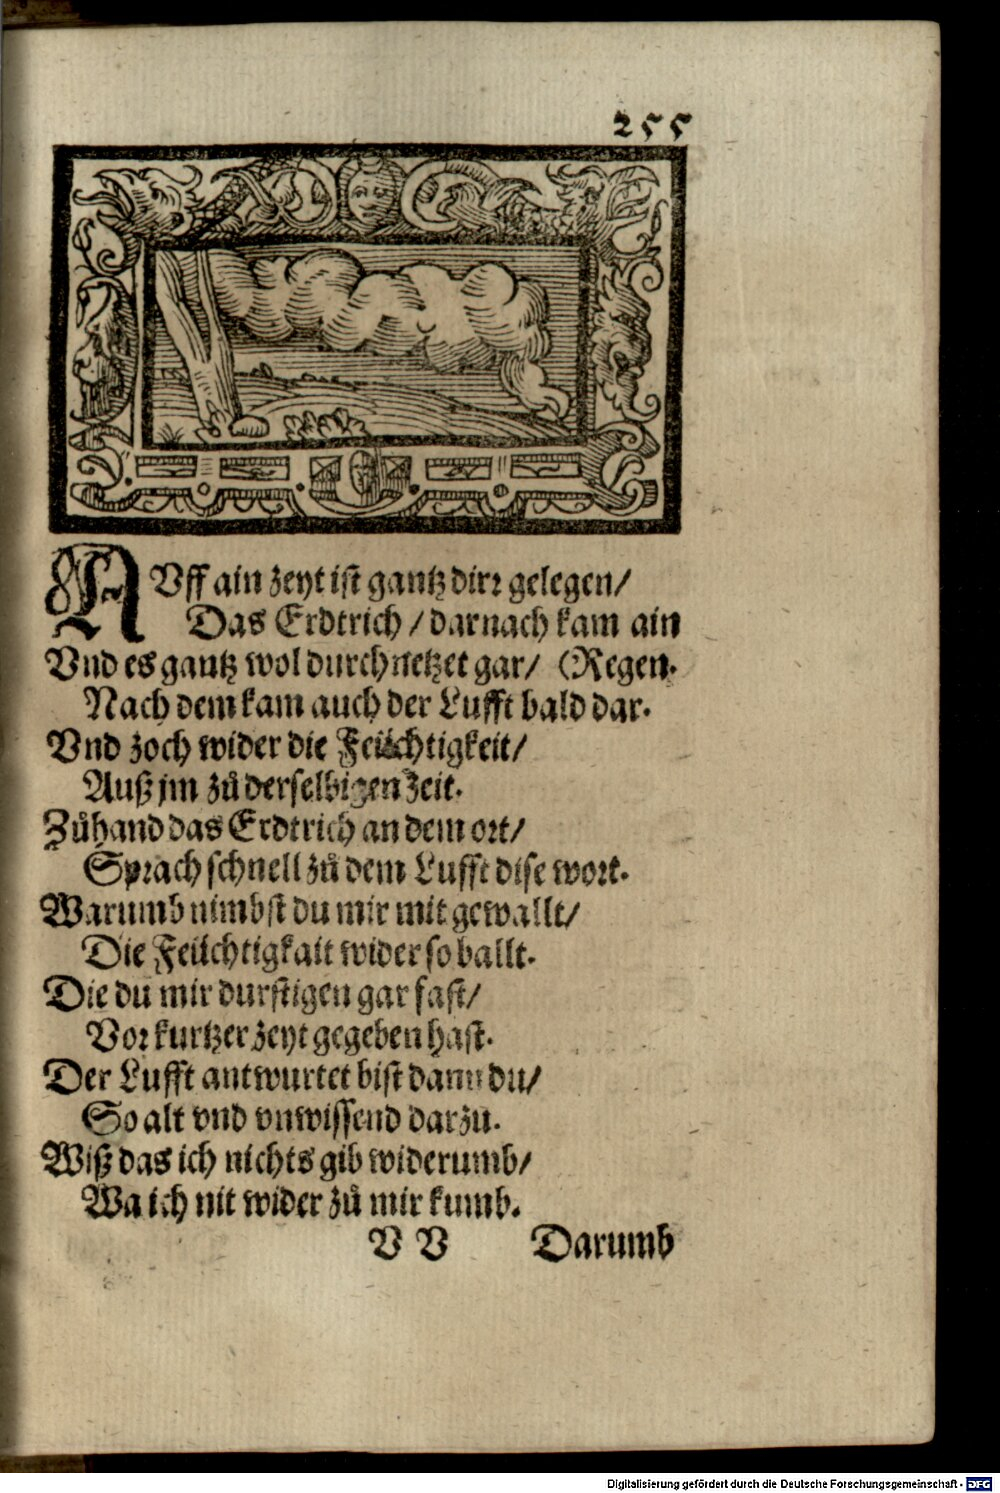 255
AUff ain zeyt ist gantz dirr gelegen/
Das Erdtrich / darnach kam ain
Vnd es gantz wol durchnetzet gar/ (Regen.
Nach dem kam auch der Lufft bald dar.
Vnd zoch wider die Feüchtigkeit/
Auß jm zů derselbigen zeit.
Zůhand das Erdtrich an dem ort/
Sprach schnell zů dem Lufft dise wort.
Warumb nimbst du mir mit gewallt/
Die Feüchtigkait wider so ballt.
Die du mir durstigen gar fast/
Vor kurtzer zeyt gegeben hast.
Der Lufft antwurtet bist dann du/
So alt vnd vnwissend darzu.
Wiß das ich nichts gib widerumb/
Wa ich nit wider zů mir kumb.
V V Darumb
Digitalisierung gefördert durch die Deutsche Forschungsgemeinschaft - DFG